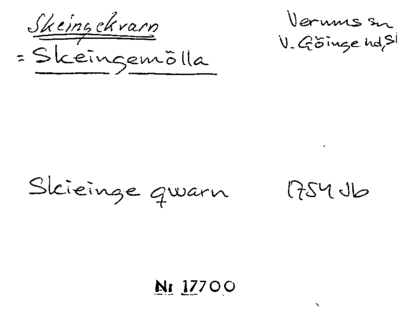 Skeingekvarn
= Skeingemölla
Verums sn
V. Göinge hd, Sk
Skieinge qwarn 1754 Jb
Nr 17700